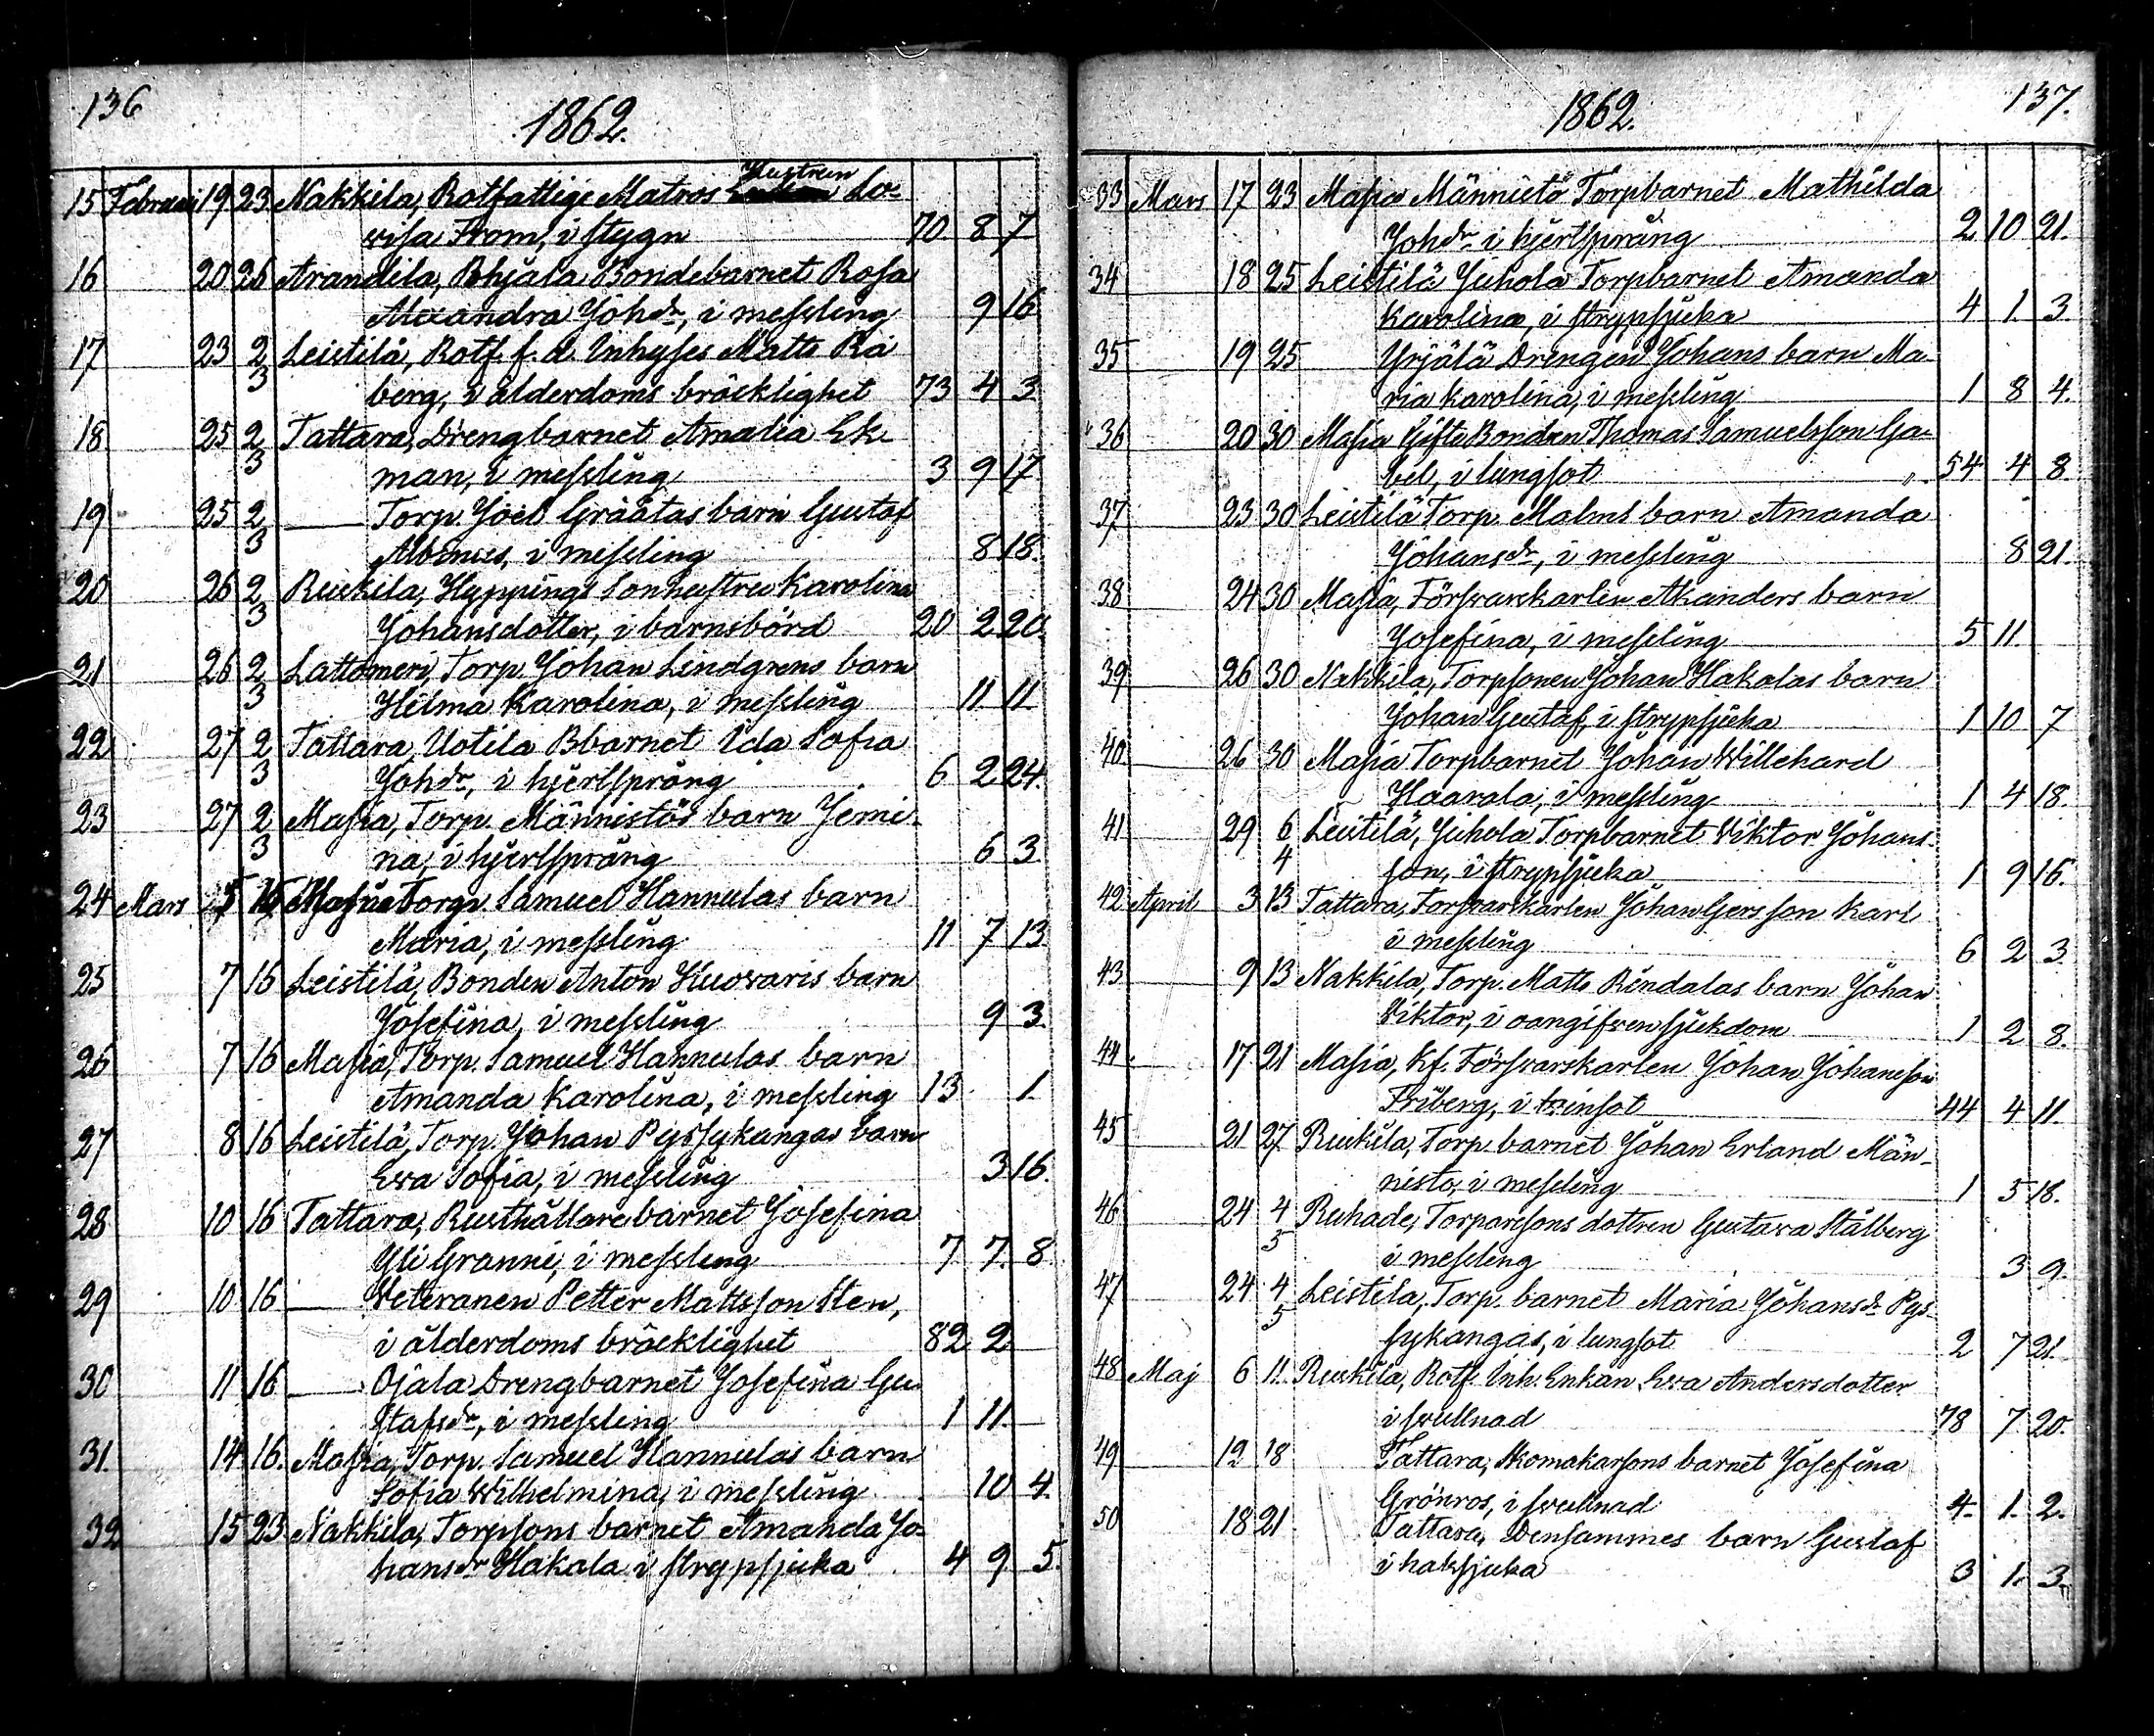 136
1862.
15 Februari 19 23 Nakkila, Rotfattige Matros Hustrun Lo-
visa From, i stygn 70 8 7
16 20 26 Arandila, Pohjala Bondebarnet Rosa
Alexandra Johdr, i messling 9 16
17 23 2/3 Leistilä, Rotf. f. d. Inhyses Matts Rå
berg, i ålderdoms bräcklighet 73 4 3
18 25 2/3 Tattara, Drengbarnet Amalia Ek-
man, i messling 3 9 17
19 25 2/3 — Torp. Joel Gräätas barn Gustaf
Albinus, i messling 8 18.
20 26 2/3 Ruskila, Hyppings Sonhustru Karolina
Johansdotter, i barnsbörd 20 2 20.
21 26 2/3 Lattomeri, Torp. Johan Lindgrens barn
Hilma Karolina, i messling 11 11
22 27 2/3 Tattara, Uotila Bbarnet Ida Sofia
Johdr, i hjertsprång 6 2 24.
23 27 2/3 Masia, Torp. Männistös barn Jemi-
na, i hjertsprång 6 3
24 Mars 5 16 Masia Torp. Samuel Hannulas barn
Maria, i messling 11 7 13
25 7 16 Leistilä, Bonden Anton Kuovaris barn
Josefina, i messling 9 3.
26 7 16 Masia, Torp. Samuel Hannulas barn
Amanda Karolina, i messling 13 1.
27 8 16 Leistilä, Torp. Johan Pyssykangas barn
Eva Sofia, i messling 3 16.
28 10 16 Tattara, Rusthållarebarnet Josefina
Yli Granni, i messling 7 7 8
29 10 16 — Veteranen Petter Mattsson Sten,
i ålderdoms bräcklighet 82 2
30 11 16 — Ojala Drengbarnet Josefina Gu-
stafsdr, i messling 1 11 —
31. 14 16. Masia, Torp. Samuel Hannulas barn
Sofia Wilhelmina, i messling 10 4.
32 15 23 Nakkila, Torpsons barnet Amanda Jo-
hansdr Hakala i strypsjuka 4 9 5.
1862. 137.
33 Mars 17 23 Masia Männistö Torpbarnet Mathilda
Johdr i hjertsprång 2 10 21.
34 18 25 Leistilä Juhola Torpbarnet Amanda
Karolina, i strypsjuka 4 1. 3.
35 19 25 Yrjälä Drengen Johans barn Ma-
ria Karolina, i messling 1 8 4.
36 20 30 Masia Gifte Bonden Thomas Samuelsson Ga-
bel, i lungsot 54 4 8.
37 23 30 Leistilä Torp. Malms barn Amanda
Johansdr, i messling 8 21.
38 24 30 Masia, Försvarskarlen Akanders barn
Josefina, i messling 5 11.
39 26 30 Nakkila, Torpsonen Johan Hakalas barn
Johan Gustaf, i strypsjuka 1 10 7
40. 26 30 Masia Torpbarnet Johan Willehard
Haarala, i messling 1 4 18.
41 29 6/4 Leistilä, Juhola Torpbarnet Viktor Johans-
son, i strypsjuka 1 9 16.
42 April 3 13 Tattara, Försvarskarlen Johan Gers son Karl
i messling 6 2 3.
43 9 13 Nakkila, Torp. Matts Rendalas barn Johan
Viktor, i oangifven sjukdom 1 2 8.
44. 17 21 Masia, Kf. Försvarskarlen Johan Johansson
Friberg, i tvinsot 44 4 11.
45 21 27 Ruskila, Torp. barnet Johan Erland Män-
nistö, i messling 1 5 18.
46 24 4/5 Ruhade, Torparesons dottren Gustava Stålberg
i messling 3 9.
47 24 4/5 Leistila, Torp. barnet Maria Johansdr Pys-
sykangas, i lungsot 2 7 21.
48 Maj 6 11. Ruskila, Rotf. Inh. Enkan Eva Andersdotter
i svullnad 78 7 20.
49 12 18 Tattara, Skomakarsons barnet Josefina
Grönros, i svullnad 4. 1. 2.
50 18 21. Tattara, Densammes barn Gustaf
i halssjuka 3 1. 3.